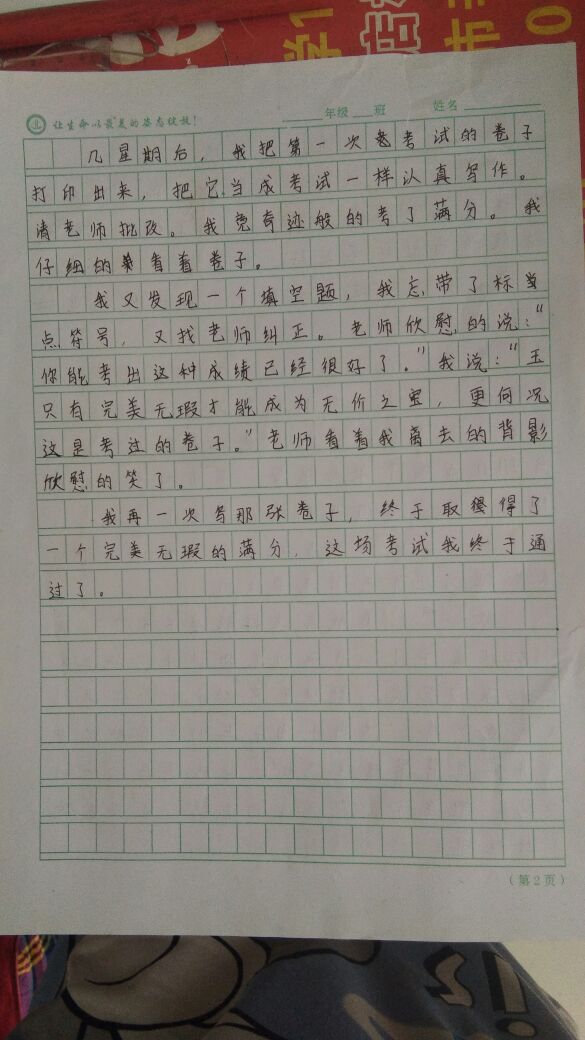 让生命以最美的姿态绽放！
年级 班 姓名
几星期后，我把第一次考试的卷子
打印出来，把它当成考试一样认真写作。
请老师批改。我竟奇迹般的考了满分。我
仔细的看着卷子。
我又发现一个填空题，我忘带了标点
点符号，又找老师纠正。老师欣慰的说：“
你能考出这种成绩已经很好了。”我说：“玉
只有完美无瑕才能成为无价之宝，更何况
这是考过的卷子。”老师看着我离去的背影
欣慰的笑了。
我再一次写那张卷子，终于取得了
一个完美无瑕的满分，这场考试我终于通
过了。
（第2页）